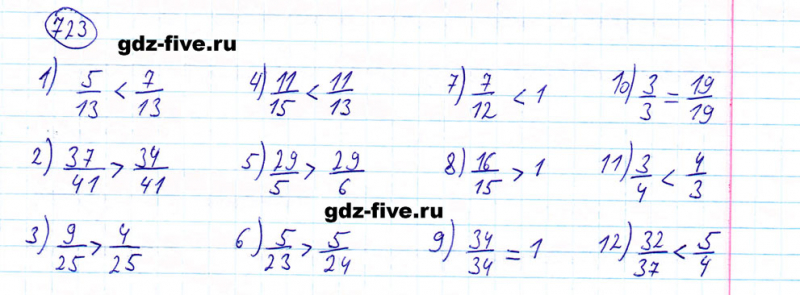 723
gdz-five.ru
1) 5/13 < 7/13 4) 11/15 < 11/13 7) 7/12 < 1 10) 3/3 = 19/19
2) 37/41 > 34/41 5) 29/5 > 29/6 8) 16/15 > 1 11) 3/4 < 4/3
gdz-five.ru
3) 9/25 > 4/25 6) 5/23 > 5/24 9) 34/34 = 1 12) 32/37 < 5/4